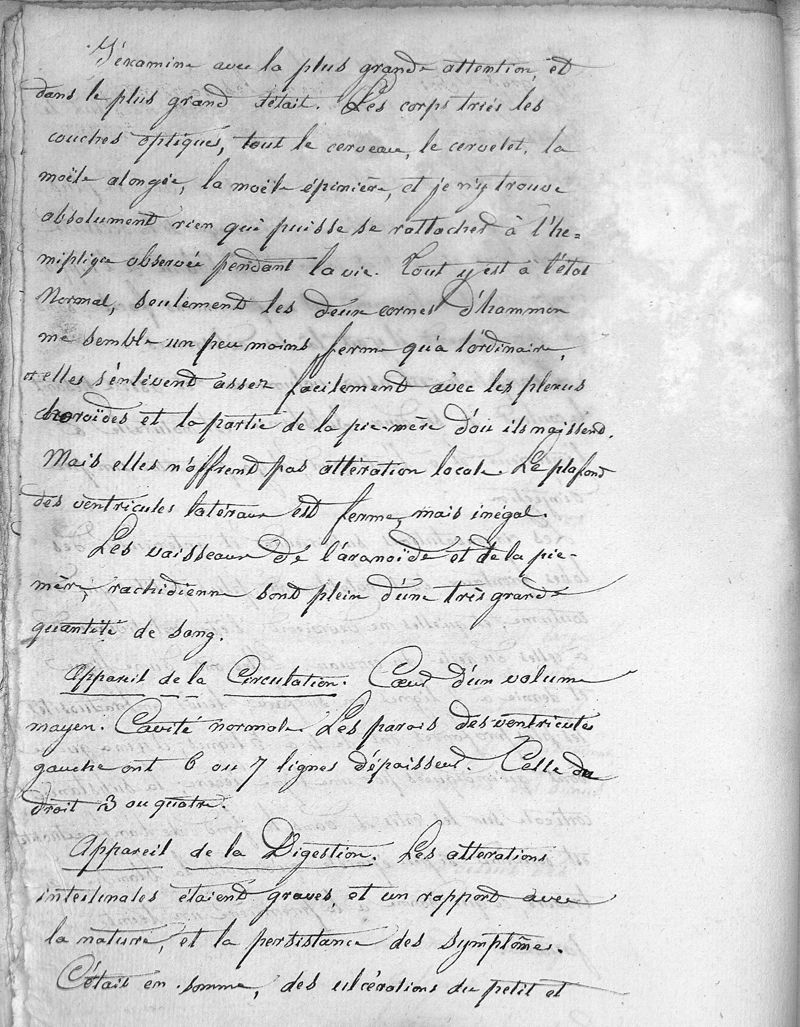 J'examine avec la plus grande attention, et
dans le plus grand détait. Les corps triés les
couches optiques, tout le cerveau, le cervelet, la
moële alongée, la moële épinière, et je n'y trouve
absolument rien qui puisse se rattacher à l'he=
miplique observée pendant la vie. Tout y est à l'état
Normal, seulement les deux cornes d'hammon
me semble un peu moins ferme qu'a l'ordinaire,
et elles s'enlèvent assez facilement avec les plexus
choroïdes et la partie de la pie-mère d'où ils naissend.
Mais elles n'offrent pas altération locale. Le plafond
des ventricules latéraux est ferme, mais inégal.
Les vaisseaux de l'aranoïde et de la pie-
mère, rachidienne sont plein d'une très grande
quantité de sang.
Appareil de la Circulation. Cœur d'un volume
mayen. Cavité normale. Les parois des ventricules
gauche ont 6 ou 7 lignes d'épaisseur. Celle du
droit 3 ou quatre.
Appareil de la Digestion. Les atterations
intestinales étaient graves, et un rapport avec
la nature, et la persistance des symptômes.
C'était en somme, des ulcérations du petit et